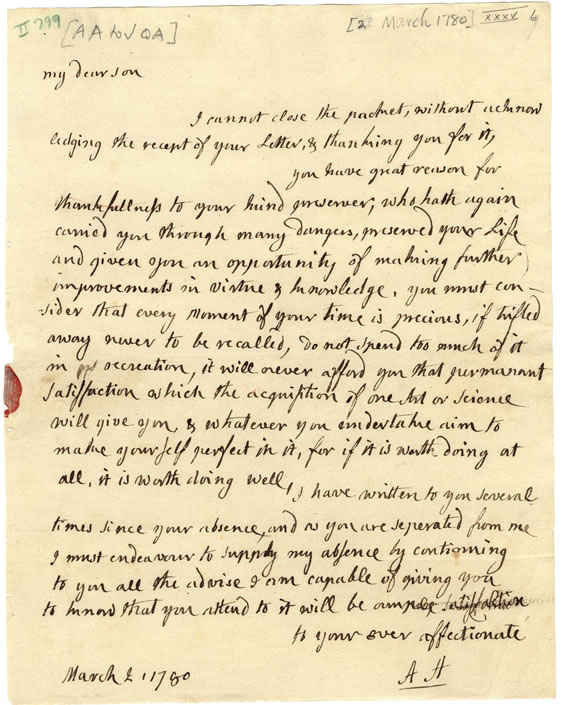 II 299
[AA to JQA]
[2 March 1780]
XXXX
my dear son
I cannot close the packet, without acknow
ledging the recept of your Letter, & thanking you for it,
you have great reason for
thankfullness to your kind preserver, who hath again
carried you through many dangers, preserved your Life
and given you an opportunity of making further
improvements in virtue & knowledge, you must con-
sider that every moment of your time is precious, if trifled
away never to be recalled, do not spend too much of it
in recreation, it will never afford you that permanant
satisfaction which the acquisition of one Art or Science
will give you, & whatever you undertake aim to
make yourself perfect in it, for if it is worth doing at
all, it is worth doing well,
I have written to you several
times since your absence, and as you are seperated from me
I must endeavour to supply my absence by continuing
to you all the advise I am capable of giving you
to know that you attend to it will be ample satisfaction
to your ever affectionate
March 2 1780
A A